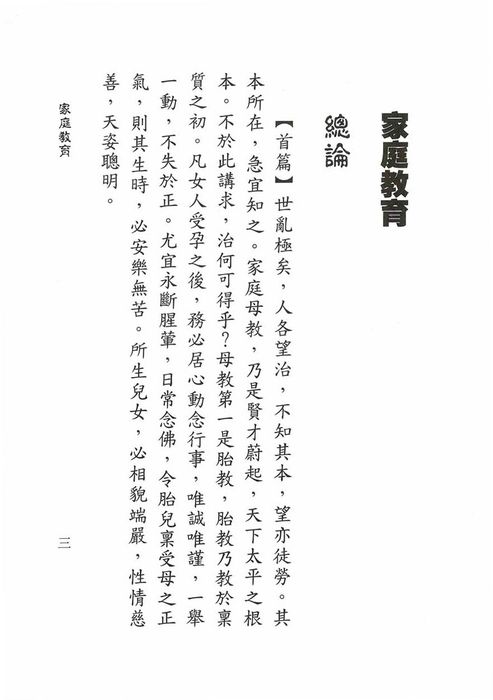 家庭教育
總論
【首篇】世亂極矣，人各望治，不知其本，望亦徒勞。其
本所在，急宜知之。家庭母教，乃是賢才蔚起，天下太平之根
本。不於此講求，治何可得乎？母教第一是胎教，胎教乃教於稟
質之初。凡女人受孕之後，務必居心動念行事，唯誠唯謹，一舉
一動，不失於正。尤宜永斷腥葷，日常念佛，令胎兒稟受母之正
氣，則其生時，必安樂無苦。所生兒女，必相貌端嚴，性情慈
善，天姿聰明。
家庭教育
三